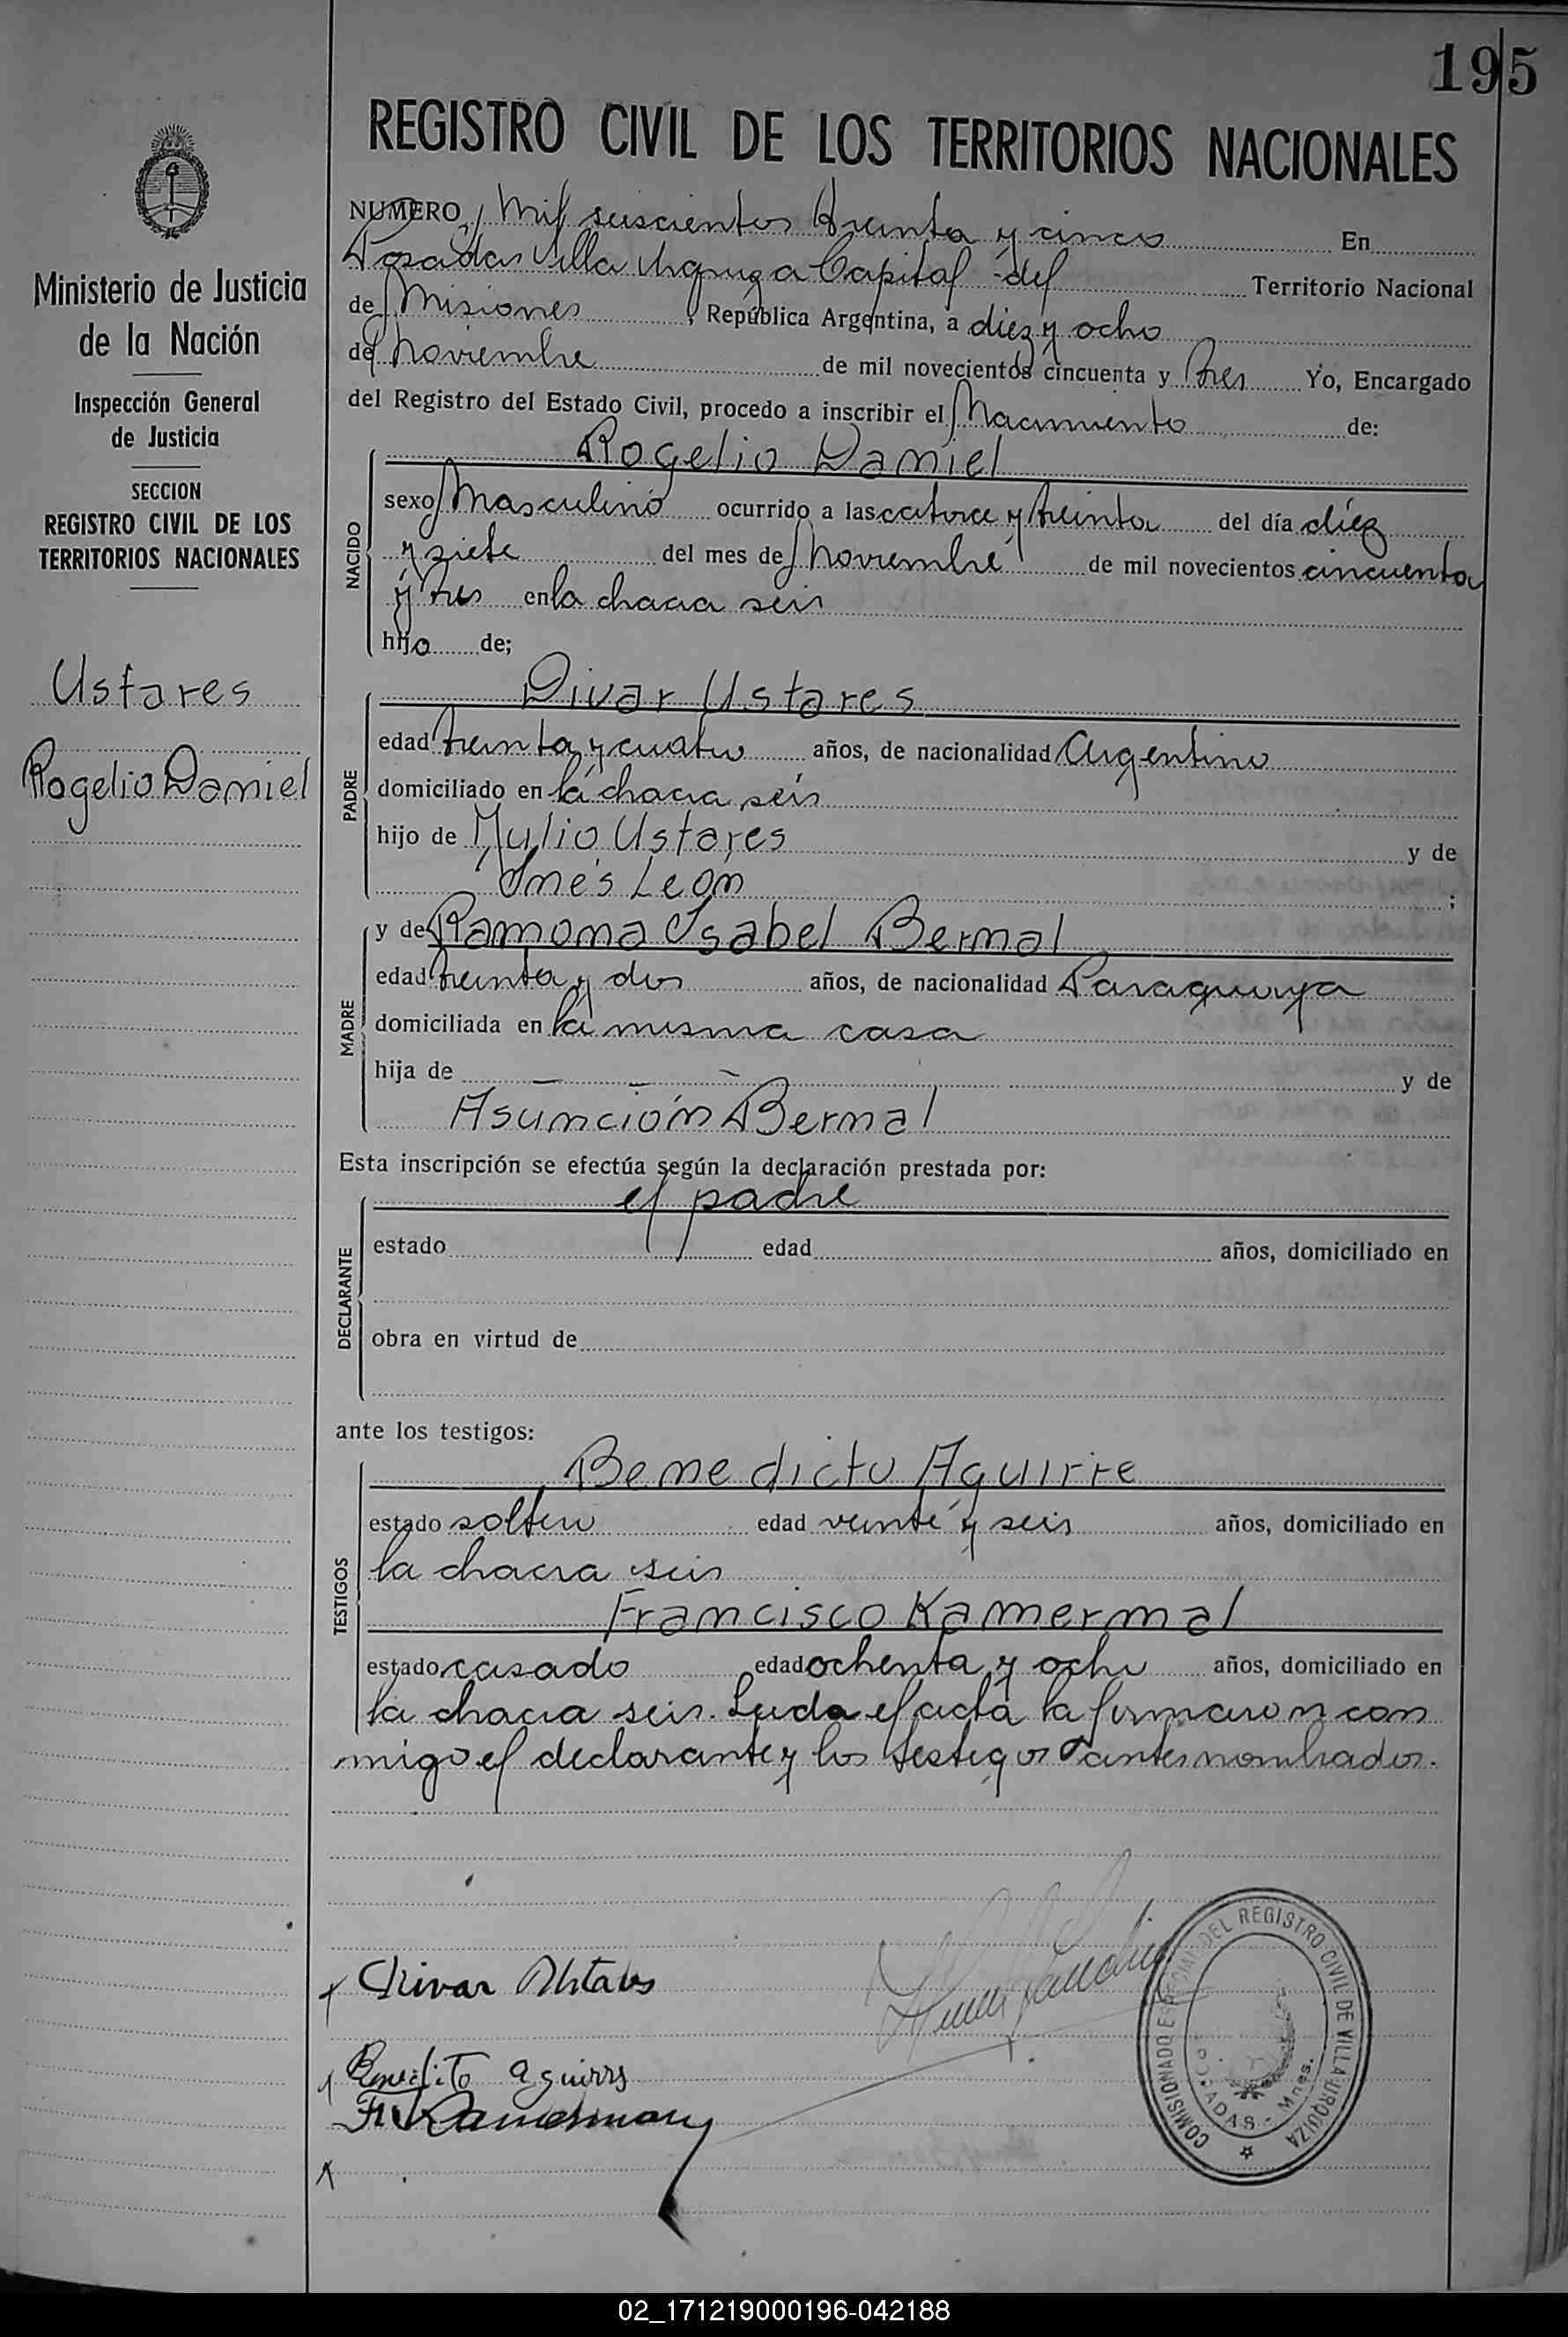 195
REGISTRO CIVIL DE LOS TERRITORIOS NACIONALES
Ministerio de Justicia
de la Nación
Inspección General
de Justicia
SECCION
REGISTRO CIVIL DE LOS
TERRITORIOS NACIONALES
Ustares
Rogelio Daniel
NUMERO Mil seiscientos treinta y cinco En
Posadas Villa Urquiza Capital del Territorio Nacional
de Misiones, República Argentina, a diez y ocho
de Noviembre de mil novecientos cincuenta y tres Yo, Encargado
del Registro del Estado Civil, procedo a inscribir el Nacimiento de:
NACIDO
Rogelio Daniel
sexo Masculino ocurrido a las catorce y treinta del día diez
y siete del mes de Noviembre de mil novecientos cincuenta
y tres en la chacra seis
hijo de;
PADRE
Divar Ustares
edad treinta y cuatro años, de nacionalidad Argentino
domiciliado en la chacra seis
hijo de Julio Ustares y de
Inés León ;
MADRE
y de Ramona Isabel Bernal
edad treinta y dos años, de nacionalidad Paraguaya
domiciliada en la misma casa
hija de — — — y de
Asunción Bernal
Esta inscripción se efectúa según la declaración prestada por:
DECLARANTE
el padre
estado edad años, domiciliado en
obra en virtud de
ante los testigos:
TESTIGOS
Benedicto Aguirre
estado soltero edad veinte y seis años, domiciliado en
la chacra seis
Francisco Kamermal
estado casado edad ochenta y ocho años, domiciliado en
la chacra seis. Leida el acta la firmaron con
migo el declarante y los testigos antes nombrados.
Divar Ustares
Benedito aguirre
Fr. Kamerman
COMISIONADO ESPECIAL DEL REGISTRO CIVIL DE VILLA URQUIZA
POSADAS - Mnes.
02_171219000196-042188